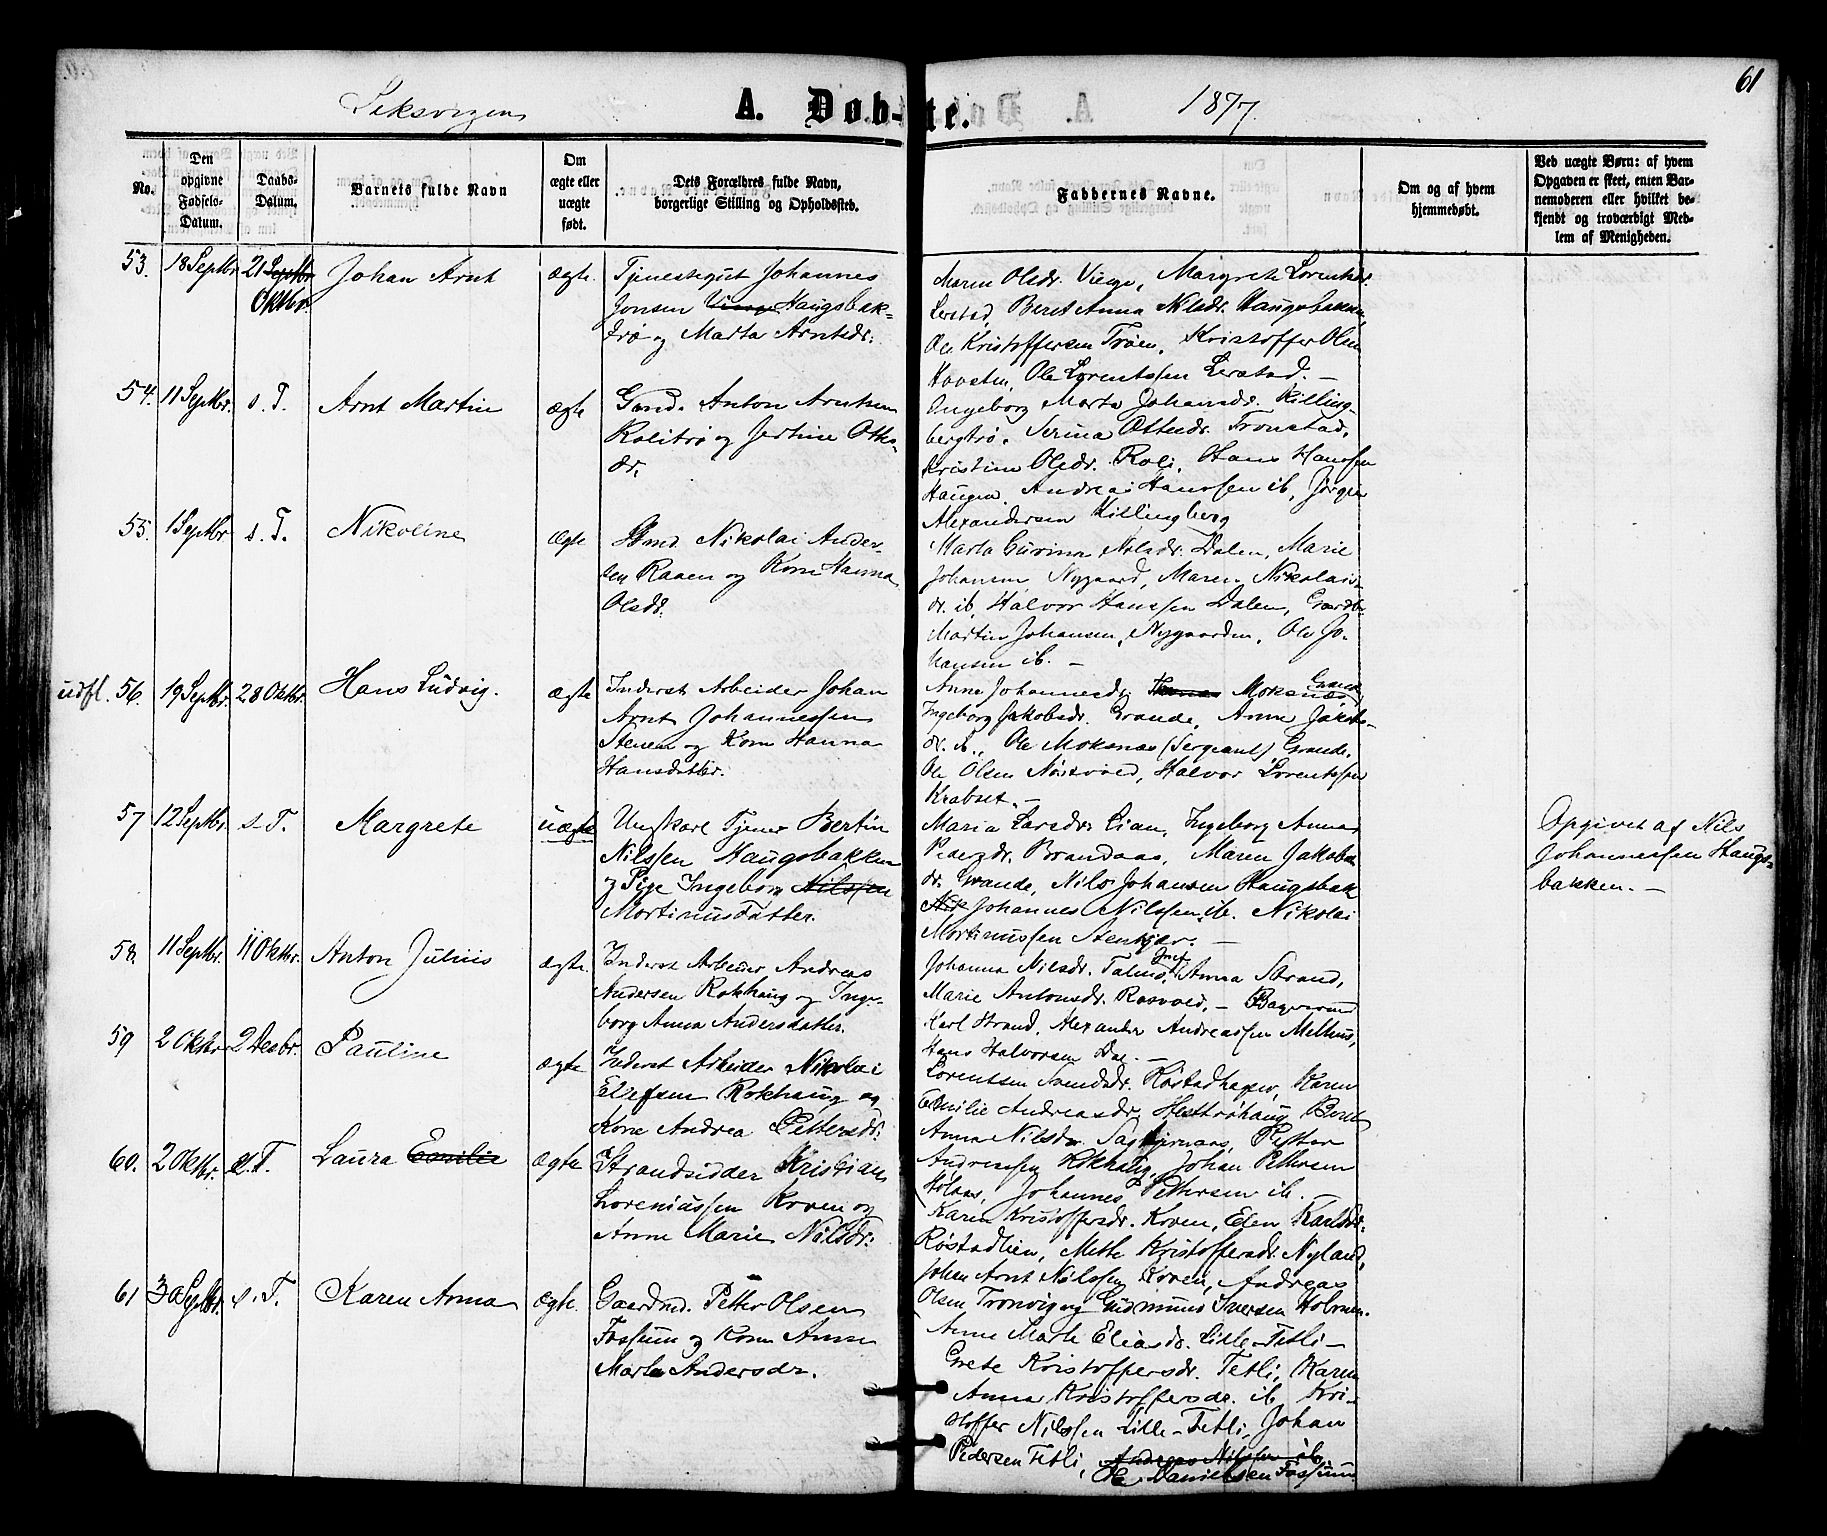 61
Leksvigen
A. Døb-te.
1877.
No.
Den opgivne Fødsels-Datum.
Daabs-Datum.
Barnets fulde Navn
Om ægte eller uægte født.
Dets Forældres fulde Navn, borgerlige Stilling og Opholdssted.
Faddernes Navne.
Om og af hvem hjemmedøbt.
Ved uægte Børn: af hvem Opgaven er skeet, enten Barnemoderen eller hvilket bekjendt og troværdigt Medlem af Menigheden.
53. 18 Septbr. 21 Septbr. Oktbr. Johan Arnt ægte.
Tjenestegut Johannes
Jonsen Haugsbak-
trø og Marta Arntsdr.
Maren Olsdr. Viege, Margrete Lorentsdr.
Lerstad, Beret Anna Nilsdr. Haugsbakken,
Ole Kristoffersen Trøen, Kristoffer Olsen
Ole Lorentssen Lerstad. —
54. 11 Septbr. s. T. Arnt Martin ægte
Gmd. Anton Arntsen
Rolitrø og Jertine Otte-
dr.
Ingeborg Marta Johansdr. Killing-
bergtrø, Serina Ottesdr. Tronstad,
Kristine Olsdr. Roli, Hans Hanssen
Haugen, Andreas Hanssen ib, Jørgen
Alexandersen Killingberg
55. 1 Septbr. s. T. Nikoline ægte
Gmd. Nikolai Ander-
sen Raaen og Kone Hanna
Olsdr.
Marta Gurina Nilsdr. Dalen, Marie
Johansen Nygaard, Maren Nikolai-
dr. ib, Halvor Hanssen Dalen, Gaardbr.
Martin Johansen, Nygaarden, Ole Jo-
hansen ib. —
udfl. 56. 19 Septbr. 28 Oktbr. Hans Ludvig. ægte
Inderst Arbeider Johan
Arnt Johannessen
Stenen og Kone Hanna
Hansdatter.
Anne Johannesdr. Moksnes Grande
Ingeborg Jakobsdr. Grande, Anne Jakobs-
dr. ib., Ole Moksnæs (Sergeant) Grande,
Ole Olsen Nøisvoed, Halvor Lorentssen
Krabset. —
57 12 Septbr. s. T. Margrete uægte
Ungkarl Tjener Bertin
Nilssen Haugsbakken
og Pige Ingeborg Nilssen
Mortinusdatter.
Maria Larsdr. Lian, Ingeborg Anna
Pedersdr. Brandaas, Maren Jakobs
dr. Grande, Nils Johansen Haugsbak
Johannes Nilssen ib. Nikolai
Mortinussen Stenkjær. —
Opgivet af Nils
Johannessen Haugs-
bakken. —
58. 11 Septbr. 11 Oktbr. Anton Julius ægte.
Inderst Arbeider Andreas
Andersen Rokhaug og Inge-
borg Anna Andersdatter.
Johanna Nilsdr. Anna Strand,
Marie Antonsdr. Rosvoed, —
Karl Strand, Alexander Andreassen Melhus,
Hans Halvorsen Dal. —
59 2 Oktbr. 2 Decbr. Pauline ægte
Inderst Arbeider Nikolai
Ellefsen Rokhaug og
Kone Andrea Pettersdr.
Lorentsen Svendsdr. Røstadhagen, Karen
Emilie Andreasdr. Hestrøhaug, Beret
Anna Nilsdr. Petter
Andreassen Rokhaug, Johan Pettersen
Holaas, Johannes Pettersen ib. —
60. 2 Oktbr. s. T. Laura Emilie ægte
Strandsidder Kristian
Loreniussen Koven og
Anne Marie Nilsdr.
Karen Kristoffersdr. Koven, Elen Karlsdr.
Røstadlien, Mette Kristoffersdr. Nyland,
Johan Arnt Nilssen Koven, Andreas
Olsen Tronvig og Gudmund Iversen Holmen.
61 30 Septbr. s. T. Karen Anna ægte.
Gaardmd. Petter Olsen
Fossum og Kone Anne
Marta Andersdr.
Anne Marta Eliasdr. Lille-Tetli —
Grete Kristoffersdr. Tetli, Karen
Anna Kristoffersdr. ib Kri-
stoffer Nilssen Lille-Tetli, Johan
Pedersen Tetli, Andreas Nilssen ib
Ole Danielsen Fossum